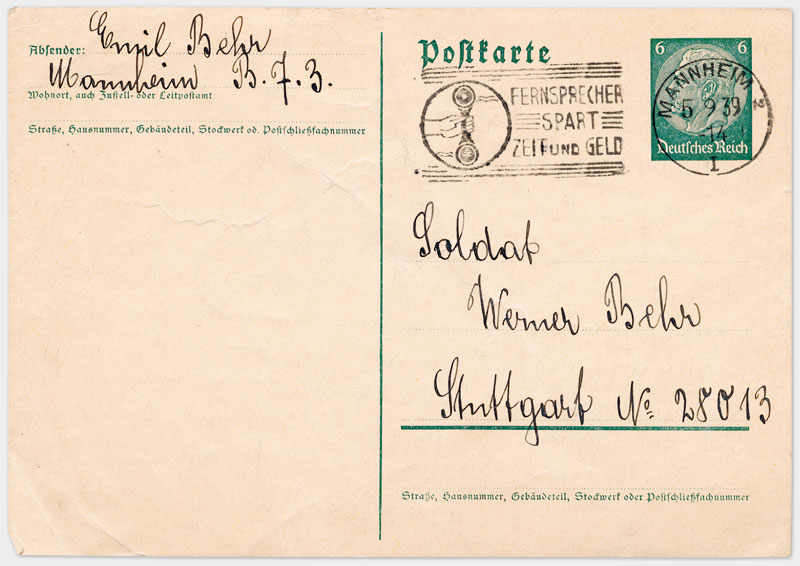 Absender: Emil Behr
Mannheim B. 7. 3.
Wohnort, auch Zustell- oder Leitpostamt
Straße, Hausnummer, Gebäudeteil, Stockwerk od. Postschließfachnummer
Postkarte
FERNSPRECHER
SPART
ZEIT UND GELD
6 6
Deutsches Reich
MANNHEIM 2
5.9.39
-14
I
Soldat
Werner Behr
Stuttgart No 28013
Straße, Hausnummer, Gebäudeteil, Stockwerk oder Postschließfachnummer